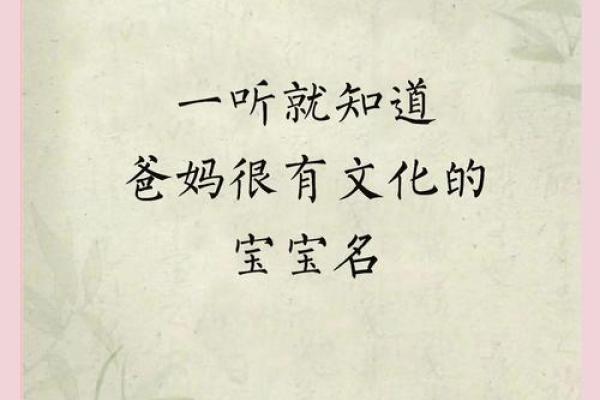 一听就知道
爸妈很有文化的
宝宝名